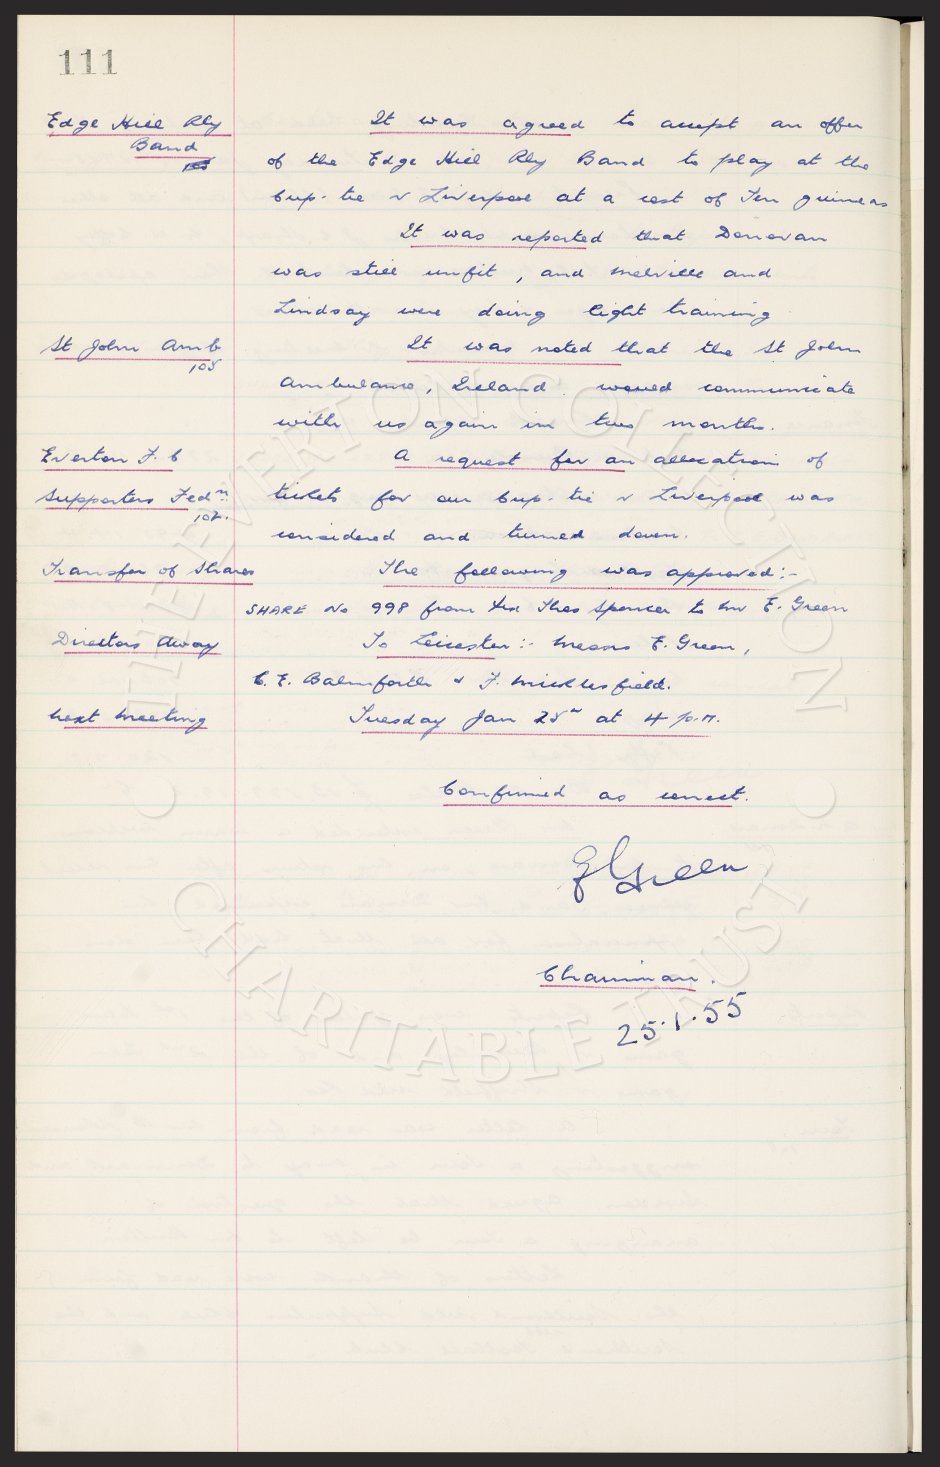 111
Edge Hill Rly It was agreed to accept an offer
Band of the Edge Hill Rly Band to play at the
Cup-tie v Liverpool at a cost of Ten guineas
It was reported that Donovan
was still unfit, and Melville and
Lindsay were doing light training
St John Amb It was noted that the St John
105
Ambulance, Ireland would communicate
with us again in two months.
Everton F.C A request for an allocation of
Supporters Fedn tickets for our Cup-tie v Liverpool was
102.
considered and turned down.
Transfer of Shares The following was approved:-
SHARE No 998 from Thos Spencer to Mr E. Green
Directors Away To Leicester:- Messrs E. Green,
C.E. Balmforth & F. Micklesfield.
Next Meeting Tuesday Jan 25th at 4 p.m.
Confirmed as correct.
E Green
Chairman.
25.1.55
THE EVERTON COLLECTION
CHARITABLE TRUST